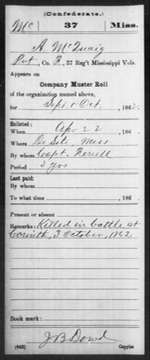 (Confederate.)
Mc 37 Miss.
A McQuaig
Pvt, Co. F, 37 Reg't Mississippi Vols.
Appears on
Company Muster Roll
of the organization named above,
for Sept & Oct, 1862.
Enlisted:
When Apr 22, 186
Where De Soto Miss
By whom Capt. Ferrill
Period 3 yrs
Last paid:
By whom
To what time , 186 .
Present or absent
Remarks: Killed in battle at
Corinth, 3 October, 1862
Book mark:
J B Dowd
(642) Copyist.